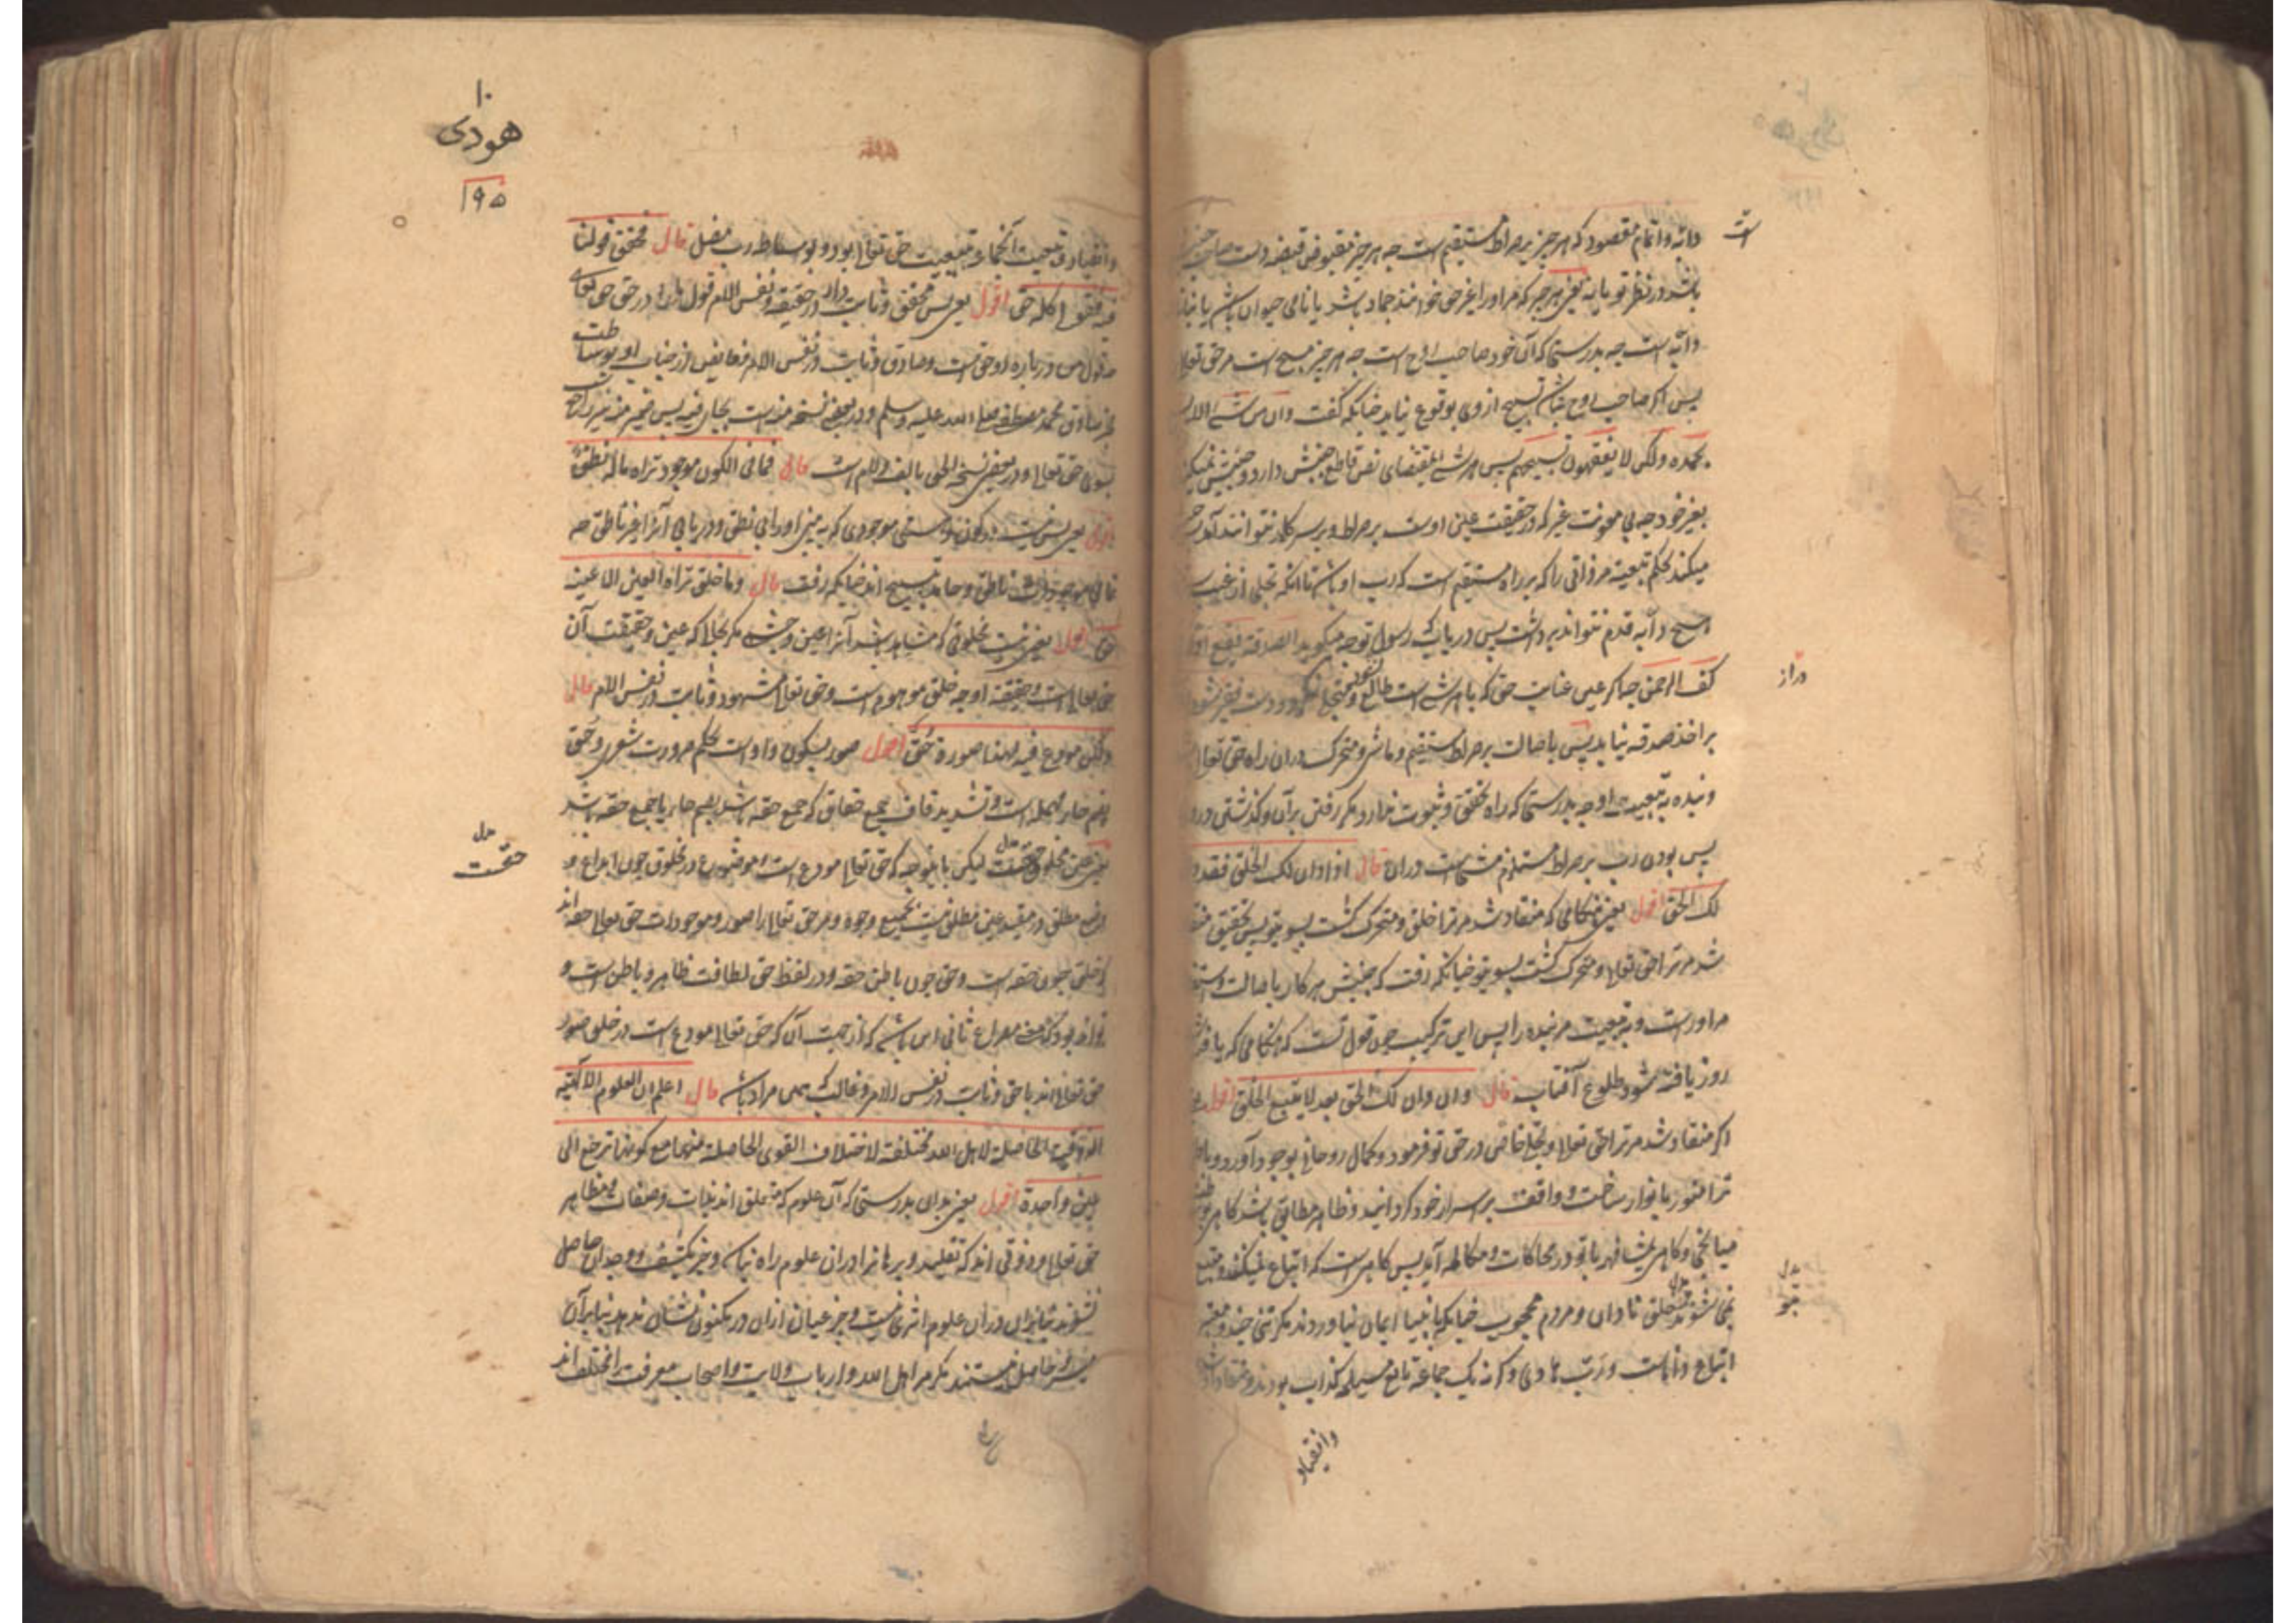 دابه و اتمام مقصود که هر چیز بر صراط مستقیم است چه هر چیز مقبوض قبضه
باشد در نظر تو یا نه یعنی هر چیز که مر او را غیر حق خوانند جماد باشد یا نامی حیوان باشد یا
دابه است چه بدرستی که آن خود صاحب روح است چه هر چیز مسبح است مر حق تعالی
پس اگر صاحب روح نباشد تسبیح از وی بوقوع نیاید چنانکه گفت وان من شئ الا
بحمده ولکن لا تفقهون تسبیحهم پس هر شئ بمقتضای نص قاطع جنبش دارد و جنبش نمیکند
بغیر خود چه بی معونت غیر که در حقیقت عین اوست بر صراط و بر سر کار نتوانند آمد
میکند بحکم تبعیت مر ذاتی را که بر راه مستقیم است که رب او باشد تا آنکه تجلی از غیب
هیچ دابه قدم نتواند برداشت پس دریاب که رسول توجه میگوید الصدقة تقع اولا
کف الرحمن چه اگر عین عنایت حق که با هر شئ است طالع و متجلی نگردد دست فقیر
دراز
بر اخذ صدقه نیاید پس باصالت بر صراط مستقیم و ماشی و متحرک در آن راه حق تعالی
و بنده به تبعیت او چه بدرستی که راه تحقق و ثبوت ندارد مگر رفتن بر آن و گذشتن
پس بودن رب بر صراط مستلزم مشی است در آن قال اذا دان لک الخلق فقد دان
لک الحق اقول یعنی هنگامی که منقاد شد مر ترا خلق و متحرک گشت بسوی تو پس بتحقیق
شد مر ترا حق تعالی و متحرک گشت بسوی تو چنانکه رفت که جنبش هر کار باصالت
مر اوراست و به تبعیت مر بنده را پس این ترکیب چون قول تست که هنگامی که یافته
روز یافته شود طلوع آفتاب قال وان دان لک الحق فقد لا یتبع الخلق اقول
اگر منقاد شد مر ترا حق تعالی و تجلی خاص در حق تو فرمود و کمال روحانی بوجود آورد
ترا منور بانوار ساخت و واقف بر اسرار خود گردانید و ظاهر مطابق باشد
و گاهی بمشافهه با تو در محاکات و مکالمه آید پس گاهی است که اتباع نمیکنند
نمی شوند خلق نادان و مردم محجوب چنانکه بانبیا ایمان نیاوردند مگر تنی چند
اتباع و نیابت و رتب هادی و گرنه یک جماعة تابع مسیلمه کذاب بودند
وانقیاد
۱۰
هودی
۱۹۵
وانقیاد و تبعیت آنجماعه به تبعیت حق تعالی بود و بوساطه رب مضل قال فحقق قولنا
فیه فقولی کله حق اقول یعنی پس محقق و ثابت دار در حقیقة و نفس الامر قول ما را در حق حق تعالی
که قول من درباره او حق است و صادق و ثابت در نفس الامر فایض از جناب او بوساطت
مخبر صادق محمد مصطفی صلی الله علیه وسلم و در بعضی نسخه منه است بجای فیه پس ضمیر منه نیز راجع
بسوی حق تعالی و در بعضی نسخه الحق بالف و لام است قال فما فی الکون موجود تراه ما له نطق
اقول یعنی پس نیست در کون و هستی موجودی که به بینی او را بی نطق و دریابی آنرا غیر ناطق چه
تمامی موجودات ناطق و حامد بتسبیح اند چنانکه رفت قال وما خلق تراه العین الا عینه
حق اقول یعنی نیست مخلوقی که مشاهد باشد آنرا عین و چشم مگر بحالی که عین و حقیقت آن
حق تعالی است و حقیقة او چه خلق موهوم است و حق تعالی مشهود و ثابت در نفس الامر قال
ولکن مودع فیه لهذا صورة حق اقول صور بسکون واو است بحکم ضرورت شعری و حق
بضم حاء مهمله است و تشدید قاف جمع حقاق که جمع حقه باشد بضم حا یا جمع حقه باشد
حقست
لیکن باینوجه که حق تعالی مودع است و موضوع در مخلوق چون ایداع و
وضع مطلق در مقید عین مطلق نیست بجمیع وجوه و مر حق تعالی را صور و موجودات حق تعالی حقه اند
که خلق چون حقه است و حق چون باطن حقه و در لفظ حق لطافت ظاهر و باطن است و
تواند بود که معنی مصراع ثانی این باشد که از جهت آن که حق تعالی مودع است در خلق صور
حق تعالی اند یا حق و ثابت در نفس الامر و غالب که همین مراد باشد قال اعلم ان العلوم الالهیه
الذوقیة الحاصلة لاهل الله مختلفة لاختلاف القوی الحاصلة منها مع کونها ترجع الی
عین واحدة اقول یعنی بدان بدرستی که آن علوم که متعلق اند بذات و صفات و مظاهر
حق تعالی و ذوقی اند که تقلید و برهانرا در آن علوم راه نیابد و جز بکشف و وجدان حاصل
نشوند بیانرا در آن علوم اثری نیست و جز عیان از آن در مکنون نشان ندهد بنابر آن
میسر و حاصل نیستند مگر مر اهل الله و ارباب ولایت و اصحاب معرفت را مختلف اند